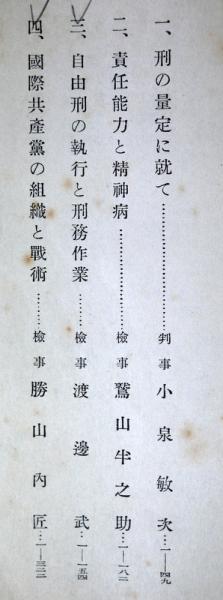 一、刑の量定に就て……………………判事 小泉敏次…一—四九
二、責任能力と精神病………………檢事 鷲山半之助…一—一八二
三、自由刑の執行と刑務作業………檢事 渡邊武…一—一五四
四、國際共產黨の組織と戰術………檢事 勝山內匠…一—三三二